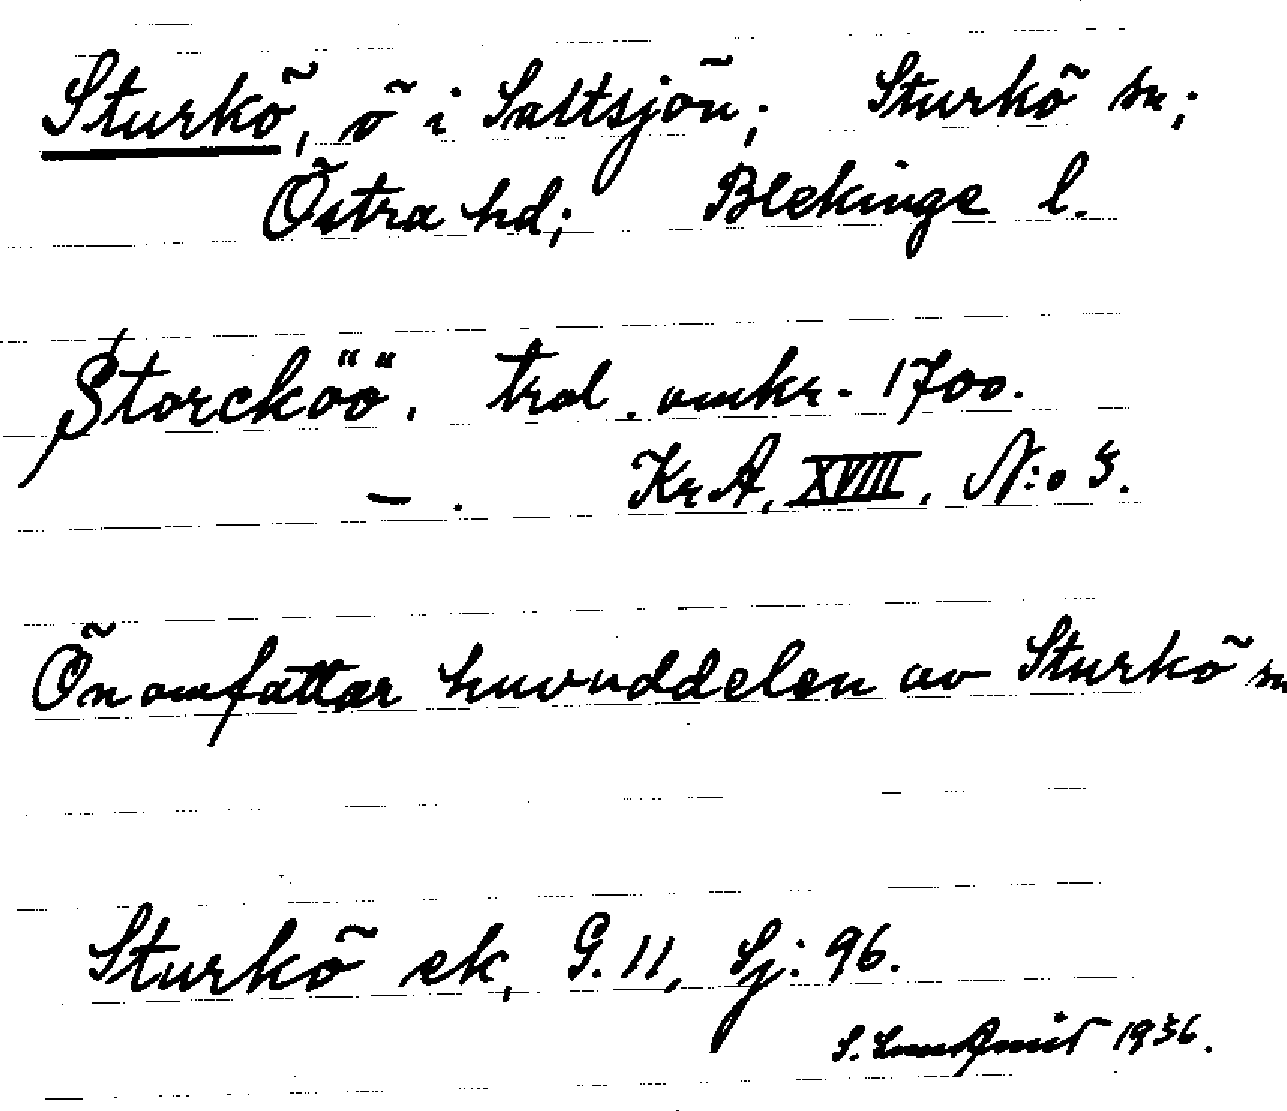 Sturkö, ö i Saltsjön; Sturkö sn;
Östra hd; Blekinge l.
Storcköö. trol. omkr. 1700.
—. KrA, XVIII, N:o 3.
Ön omfattar huvuddelen av Sturkö sn
Sturkö ek, G. 11, Sj: 96.
S. 1936.